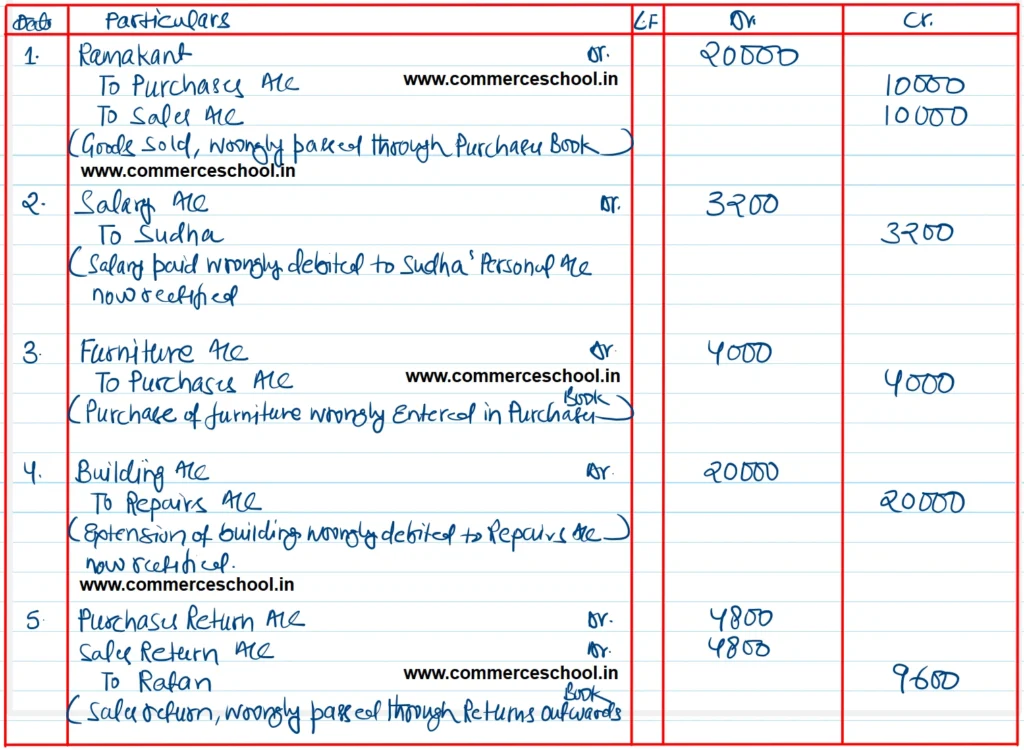 Date Particulars LF Dr. Cr.
1. Ramakant Dr. 20000
To Purchases A/c www.commerceschool.in 10000
To Sales A/c 10000
(Goods sold, wrongly passed through Purchases Book)
www.commerceschool.in
2. Salary A/c Dr. 3200
To Sudha 3200
(Salary paid wrongly debited to Sudha's Personal A/c
now rectified
3. Furniture A/c Dr. 4000
To Purchases A/c www.commerceschool.in 4000
(Purchase of furniture wrongly Entered in Purchases Book)
4. Building A/c Dr. 20000
To Repairs A/c 20000
(Extension of building wrongly debited to Repairs A/c)
now rectified.
www.commerceschool.in
5. Purchases Return A/c Dr. 4800
Sales Return A/c Dr. 4800
To Ratan www.commerceschool.in 9600
(Sales return, wrongly passed through Returns outwards Book